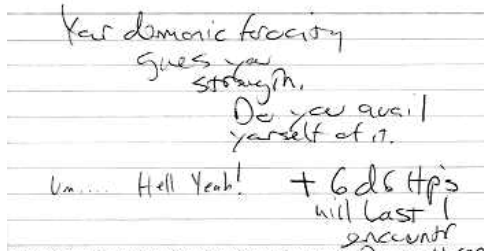 Your demonic ferocity
gives you
strength.
Do you avail
yourself of it.
Um.... Hell Yeah! + 6d6 Hp's
will Last 1
encountr